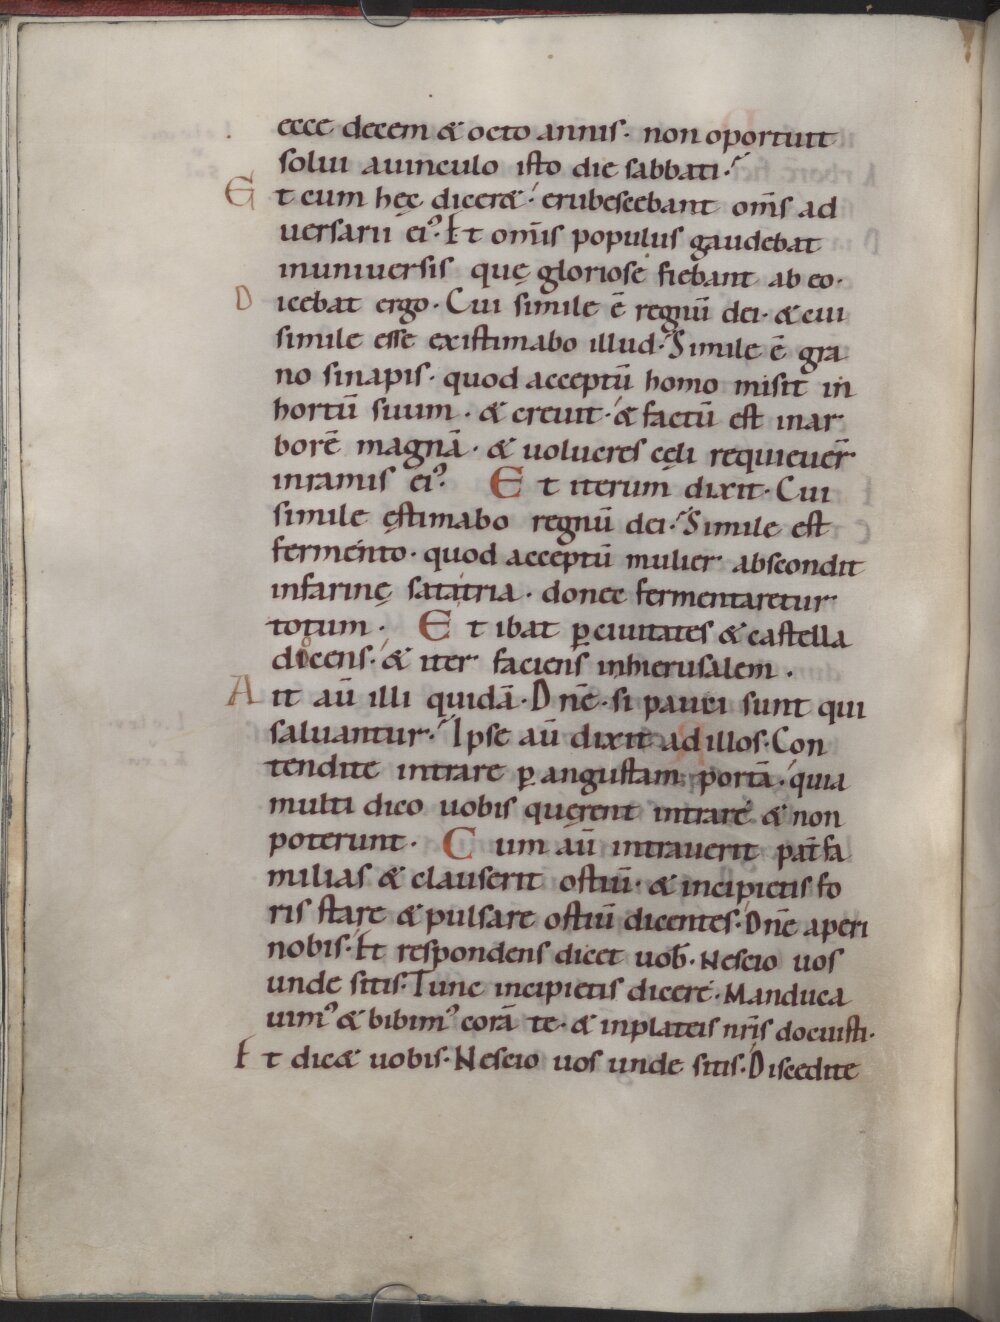 ecce decem & octo annis· non oportuit
solui auinculo isto die sabbati·
Et cum hęc dicer&· erubescebant om̄s ad
uersarii ei᾿· Et om̄is populus gaudebat
inuniuersis quę gloriose fiebant ab eo·
Dicebat ergo· Cui simile ē regnū dei· & cui
simile esse existimabo illud· Simile ē gra
no sinapis· quod acceptū homo misit in
hortū suum· & creuit· & factū est inar
borē magnā· & uolucres cęli requieuer̄
inramis ei᾿· Et iterum dixit· Cui
simile ęstimabo regnū dei· Simile est
fermento· quod acceptū mulier abscondit
infarinę satatria· donec fermentaretur
totum· Et ibat ꝑciuitates & castella
docens· & iter faciens inhierusalem·
Ait aū illi quidā· Dn̄e· si pauci sunt qui
saluantur· Ipse aū dixit ad illos· Con
tendite intrare ꝑ angustam portā· quia
multi dico uobis quęrent intrare & non
poterunt· Cum aū intrauerit pat̄fa
milias & clauserit ostiū· & incipietis fo
ris stare & pulsare ostiū dicentes· Dn̄e aperi
nobis· Et respondens dicet uob̄· Nescio uos
unde sitis· Tunc incipietis dicere· Manduca
uim᾿ & bibim᾿ corā te· & inplateis nr̄is docuisti·
Et dic& uobis· Nescio uos unde sitis· Discedite